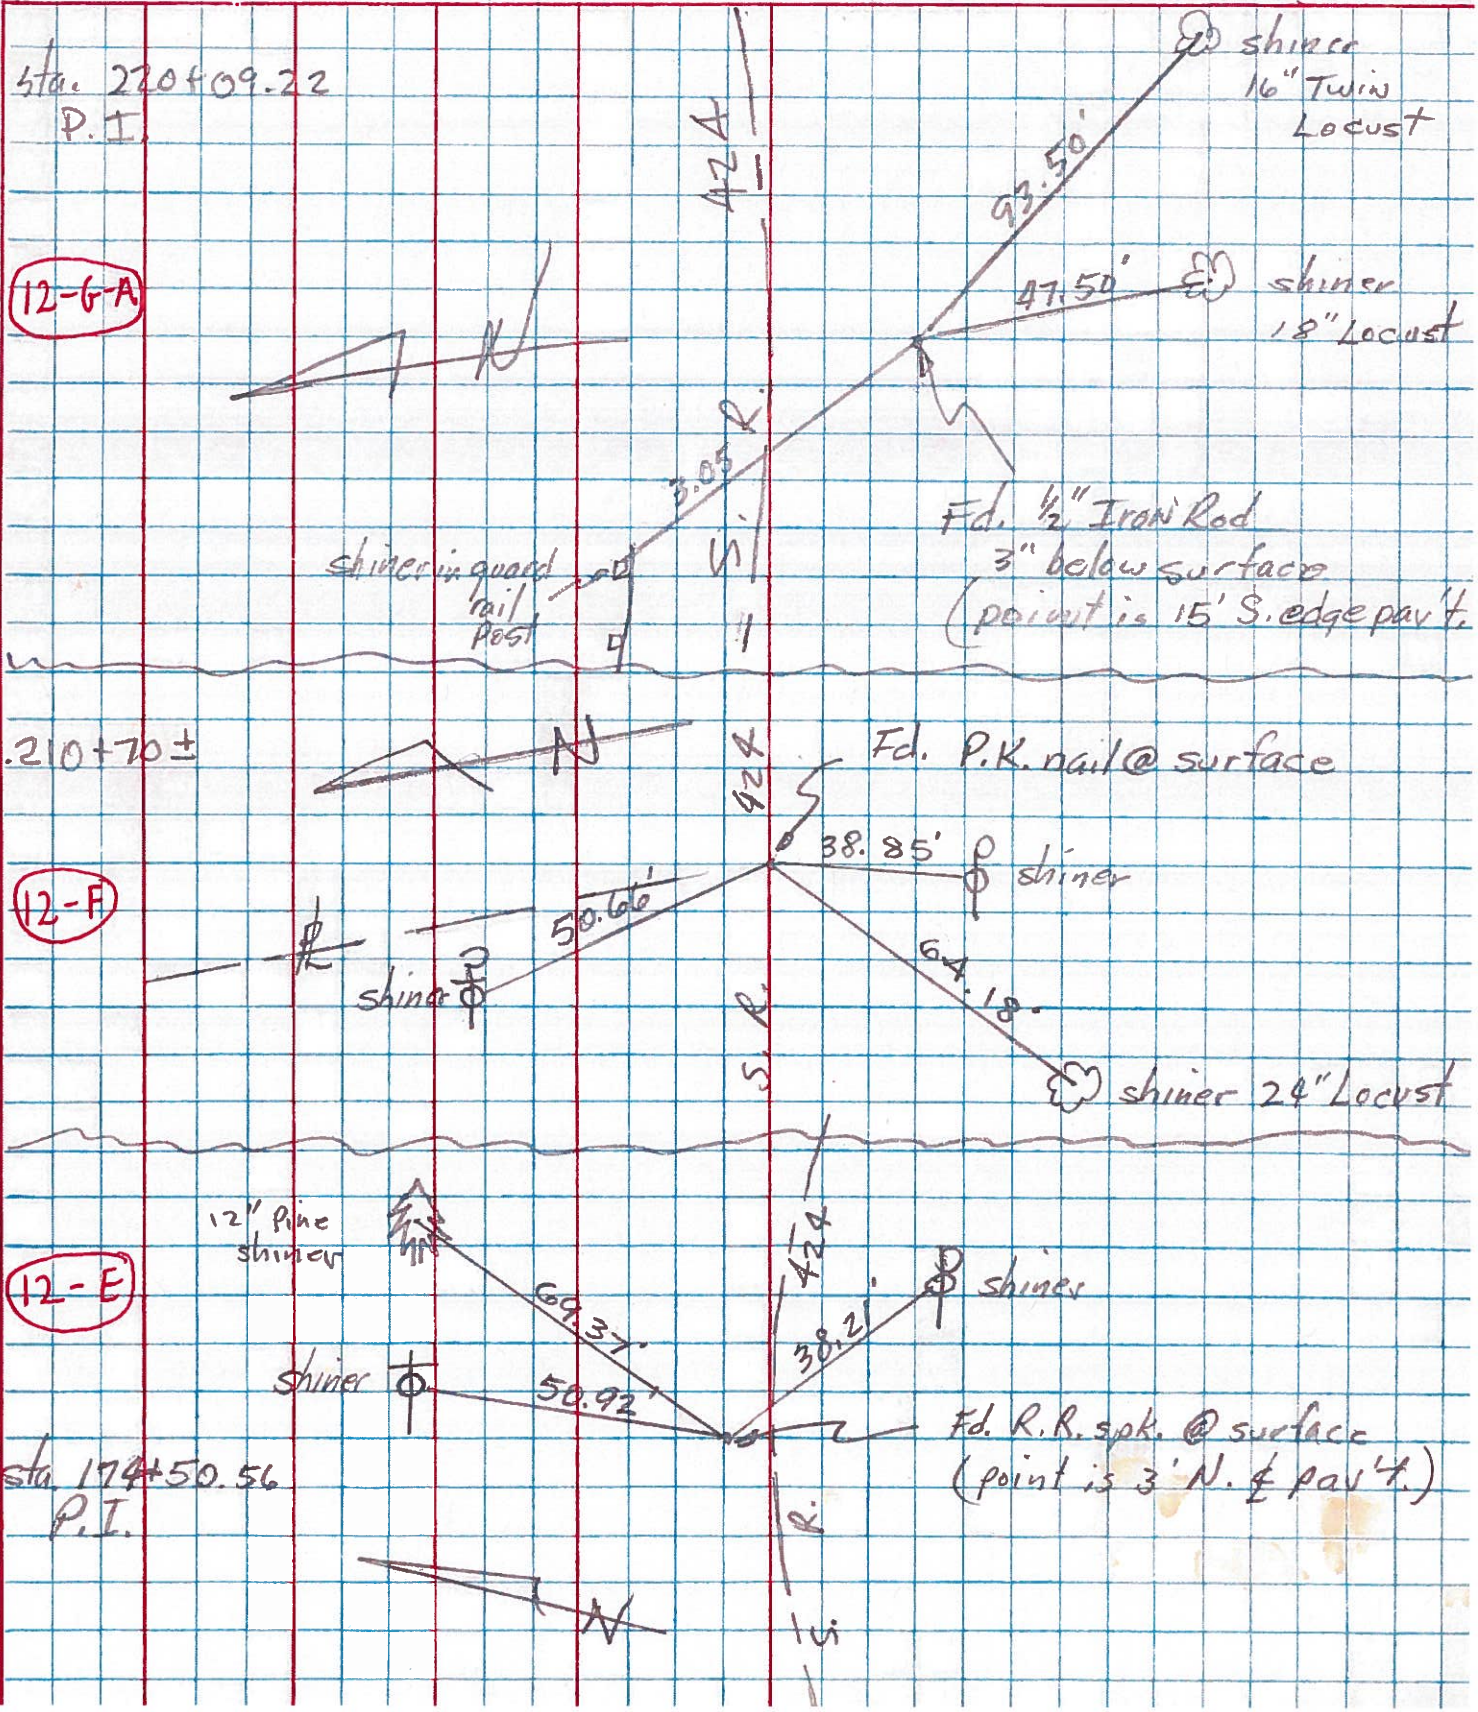 sta. 220+09.22
P.I.
12-G-A
N
S. R. 424
93.50'
shiner
16" Twin
Locust
47.50'
shiner
18" Locust
3.05
shiner in guard
rail
post
Fd. 1/2" Iron Rod
3" below surface
(point is 15' S. edge pav't.
210+70±
12-F
N
S. R. 424
Fd. P.K. nail @ surface
38.85'
shiner
50.66'
℄
shiner
64.18'
shiner 24" Locust
12" Pine
shiner
12-E
69.37'
S. R. 424
38.21'
shiner
shiner
50.92'
Fd. R.R. spk. @ surface
(point is 3' N. ℄ pav't.)
sta. 174+50.56
P.I.
N